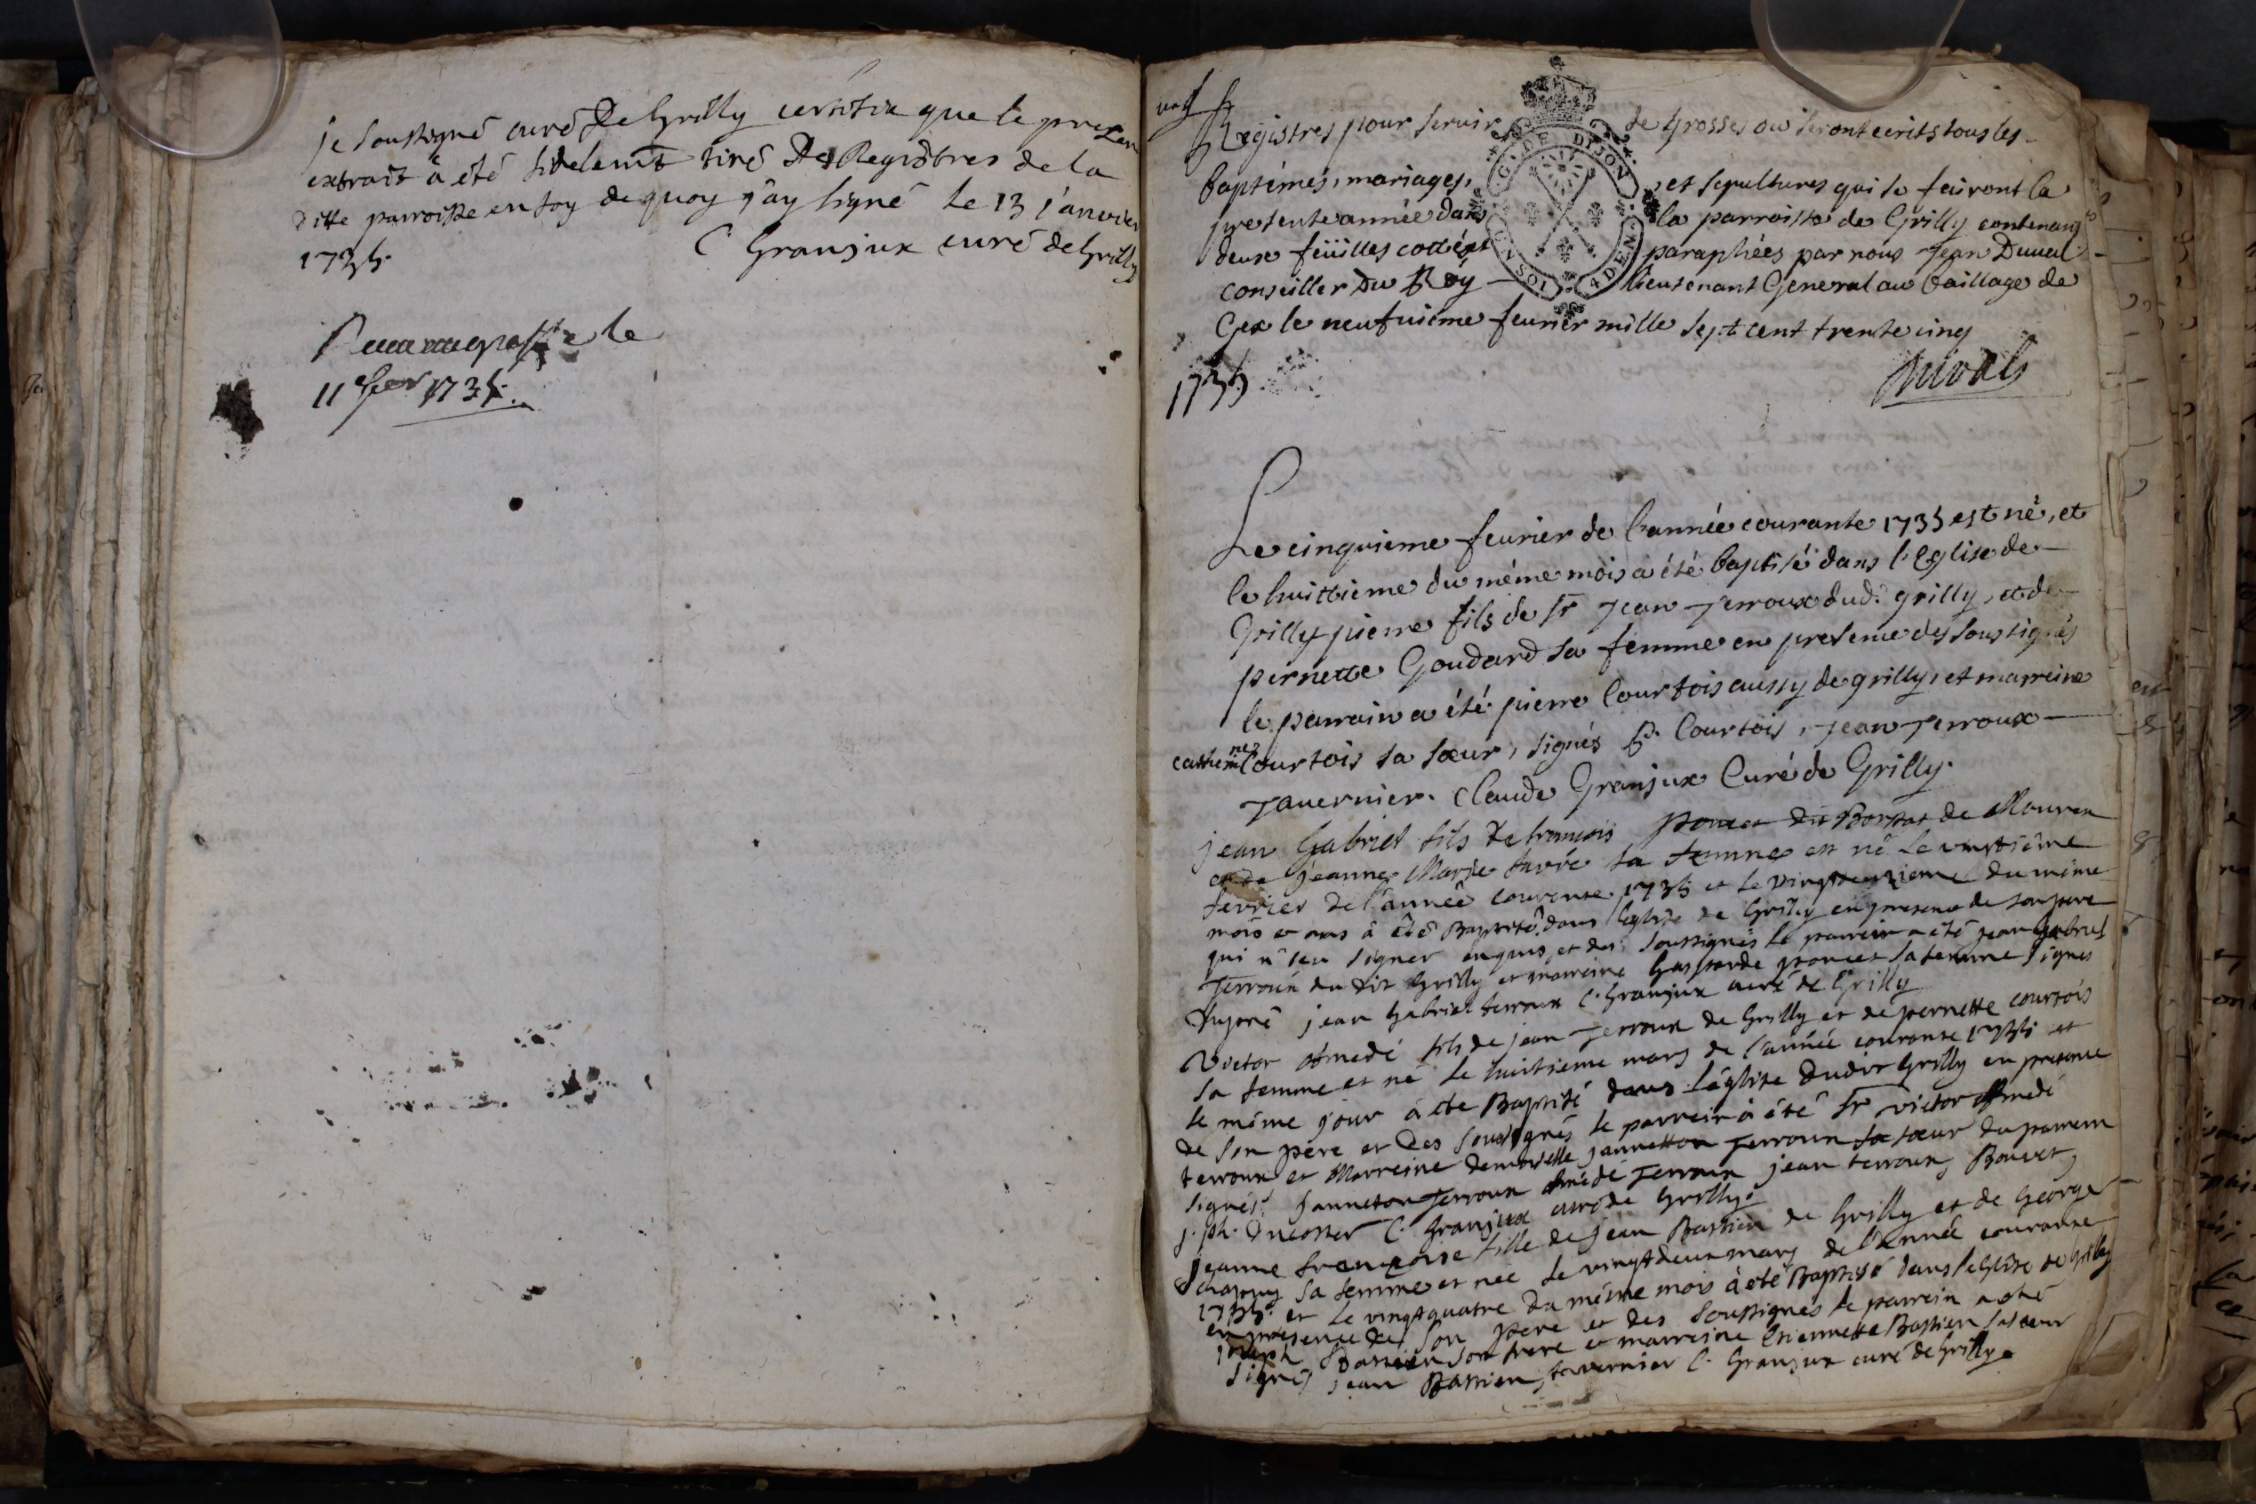 je soussigné curé De Grilly certifie que le presen
extrait à été fidelemt tiré Des Registres de la
ditte parroisse en foy de quoy j'ay signé le 13 janvier
1735. C Granjux curé de Grilly
grosse le
11e 1735.
Registres pour servir de Grosses ou seront ecrits tous les
baptémes, mariages, et sepultures qui se feiront la
presente année dans la parroisse de Grilly contenant
deux feüilles cottées paraphées par nous Jean Duval
conseiller Du Roy lieutenant General au bailliage de
Gex le neufvieme feurier mille sept cent trente cinq
1735 Duval
G. DE DIJON
4 DEN.
Le cinquieme feurier de l'année courante 1735 est né, et
le huittieme du méme mois a été baptisé dans l'Eglise de
Grilly pierre fils de sr Jean Terroux dud. grilly, et de
pernette Goudard sa femme en presence des soussignés
le parrain a été pierre Courtois aussy de grilly, et marreine
Courtois sa sœur, signés P. Courtois, Jean Terroux
Tavernier. Claude Granjux Curé de Grilly.
jean Gabriel fils De francois Poncet dit Borssat de Mourex
et de jeanne Marie favre sa femme est né Le vingtième
fevrier de l'année courante 1735 et le du même
mois et ans à été Baptisé dans l'eglise de Grilly en presence de son pere
qui n'a seu signer enquis, et des soussignés le parrein a été jean Gabriel
Terroux du dit Grilly et marreine Gasparde poncet sa femme signés
Dupré jean Gabriel terroux C. Granjux curé de Grilly
Victor Amedé fils de jean Terroux de Grilly et de pernette courtois
sa femme est né le huitieme mars de l'année courante 1735 et
le même jour à été Baptisé dans l'église dudit Grilly en presence
de son pere et des soussignés le parrein à été sr victor Amedé
terroux et Marreine demoiselle jannetton Terroux sa sœur du parrein
signés Janneton Terroux Amedé Terroux jean terroux, Bouvet,
j. ph. Ducoster C. Granjux curé de Grilly.
jeanne francoise fille de jean Bastien de Grilly et de George
Chapuy sa femme est née le vingtdeux mars de l'année courante
1735. et le vingtquatre du même mois à été Baptisé dans l'eglise de Grilly
en presence de son pere et des soussignés le parrein a été
joseph Bastien son frere et marreine Etiennette Bastien sa sœur
signés jean Bastien, tavernier C. Granjux curé de Grilly